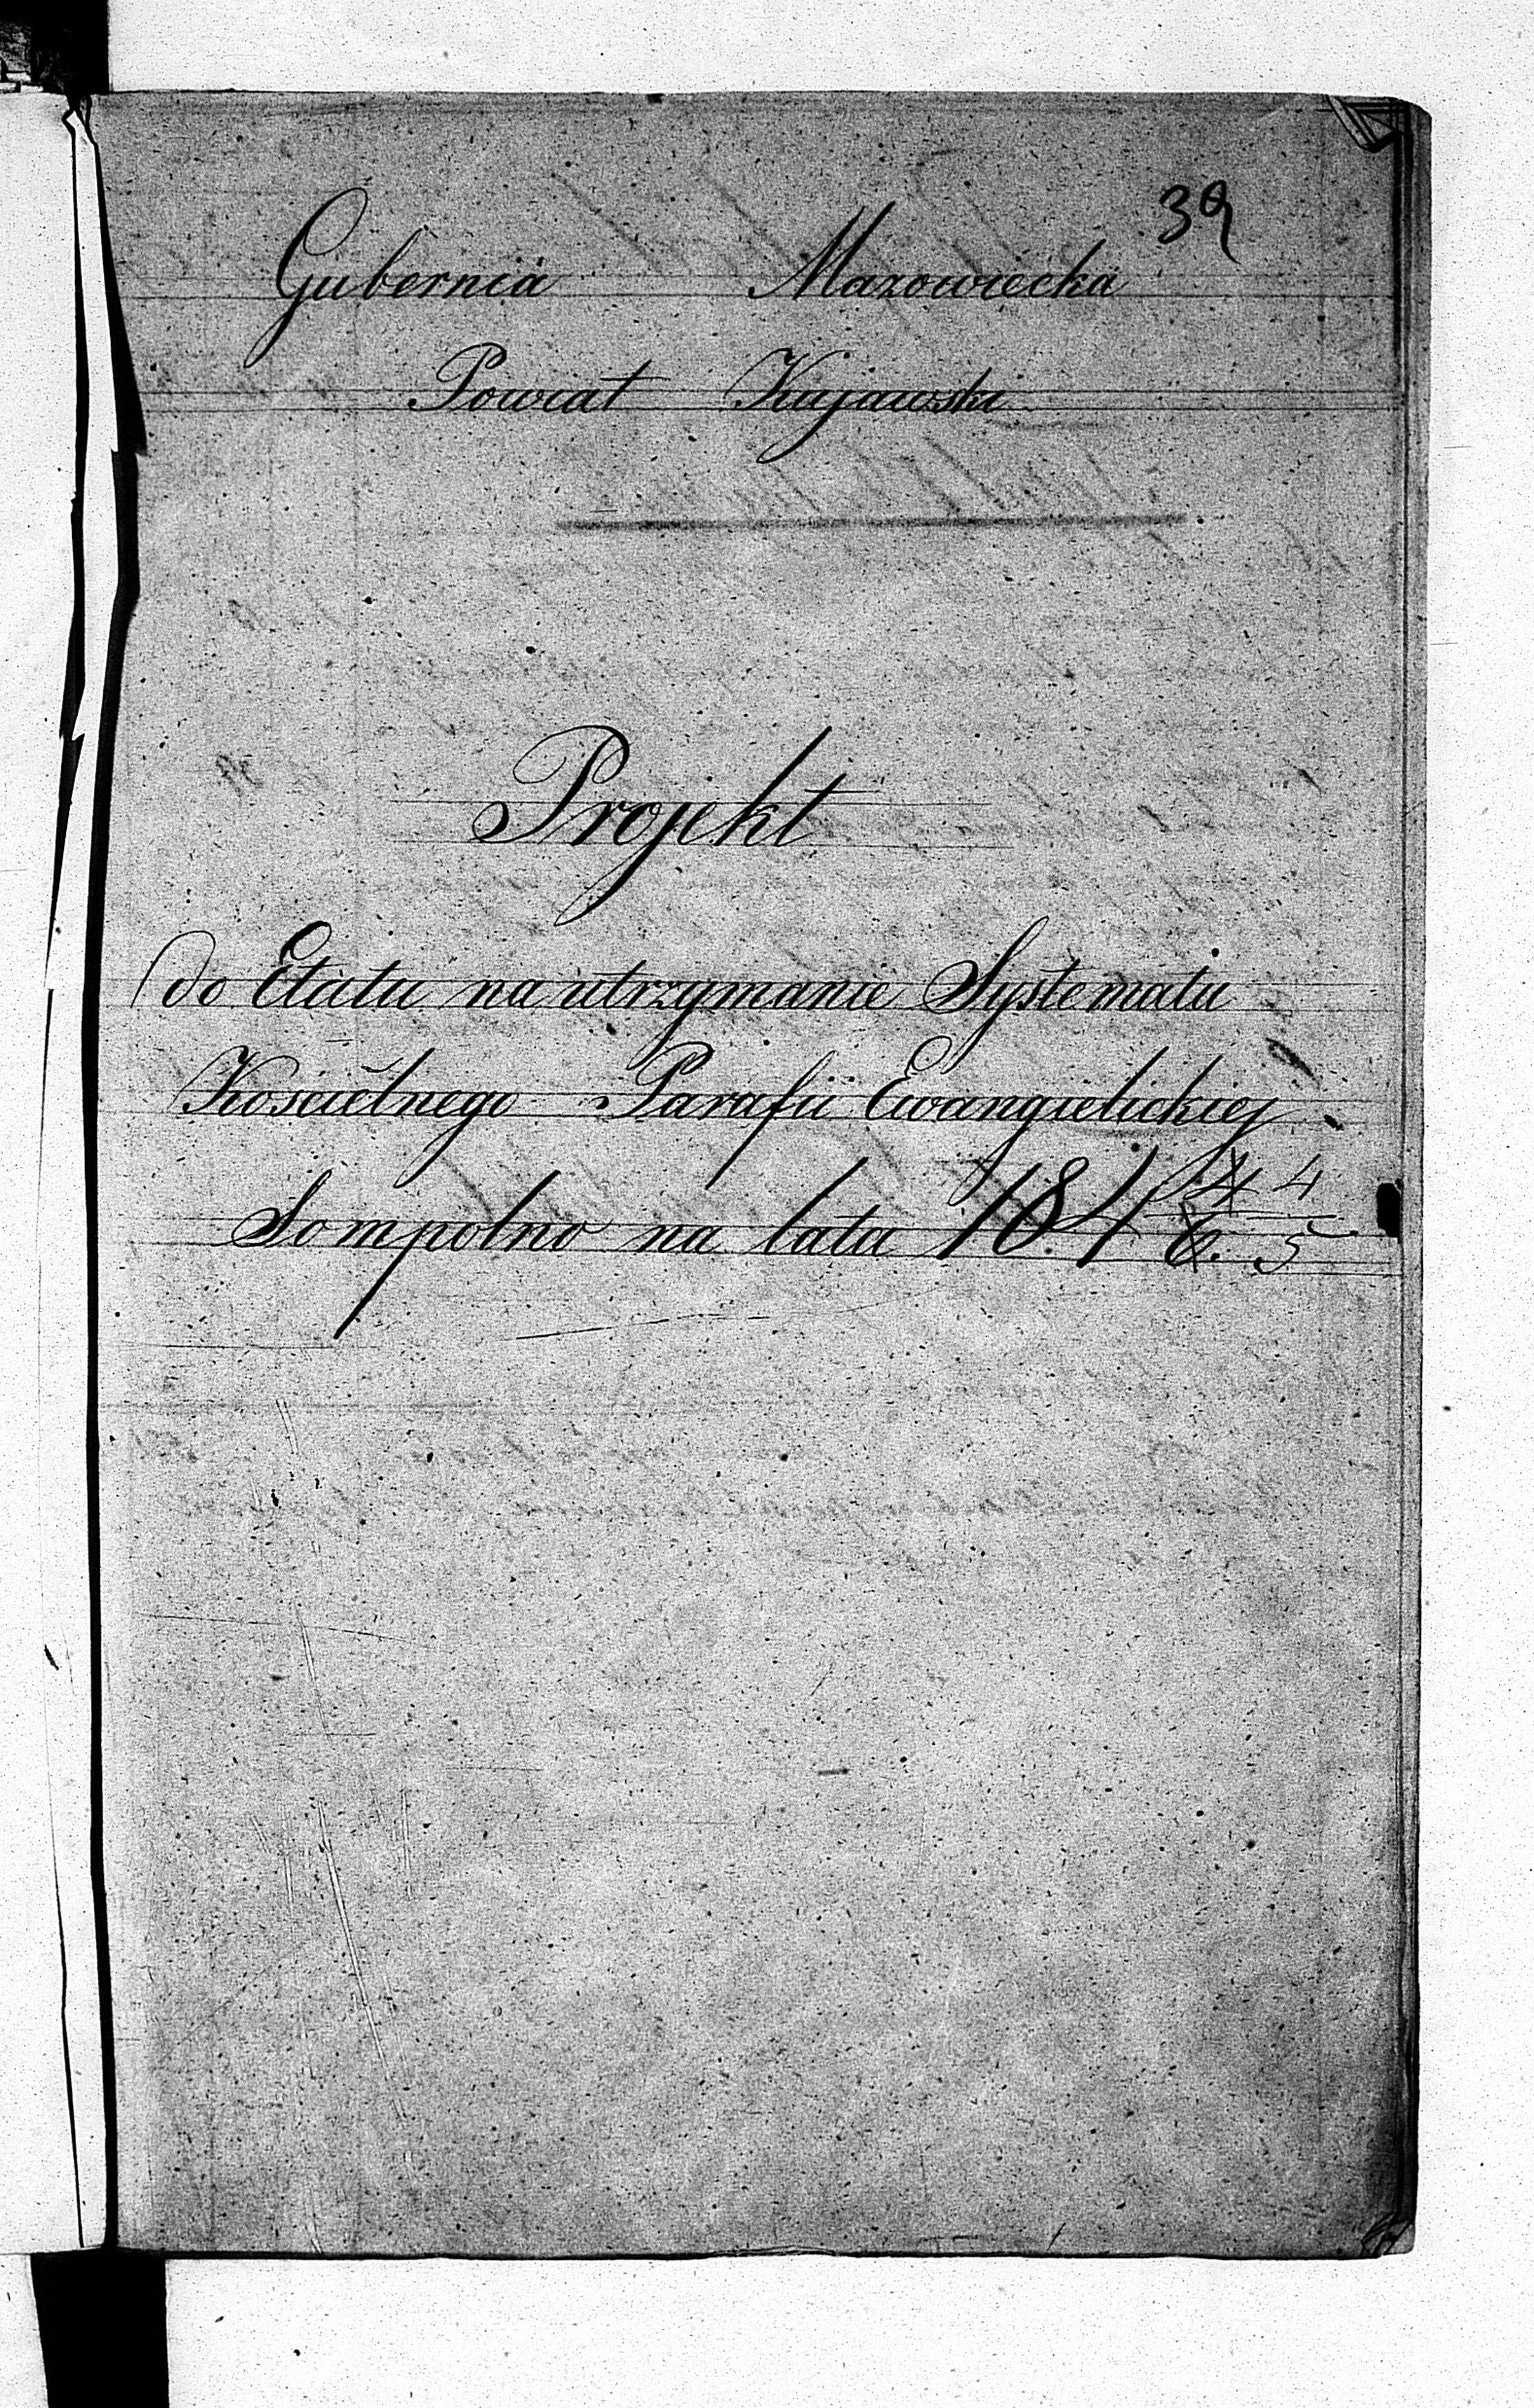 39
Gubernia Mazowiecka
Powiat Kujawski
Projekt
do Etatu na utrzymanie Systematu
Kościelnego Parafii Ewangielickiej
Sompolno na lata 184 4/6. 4/5